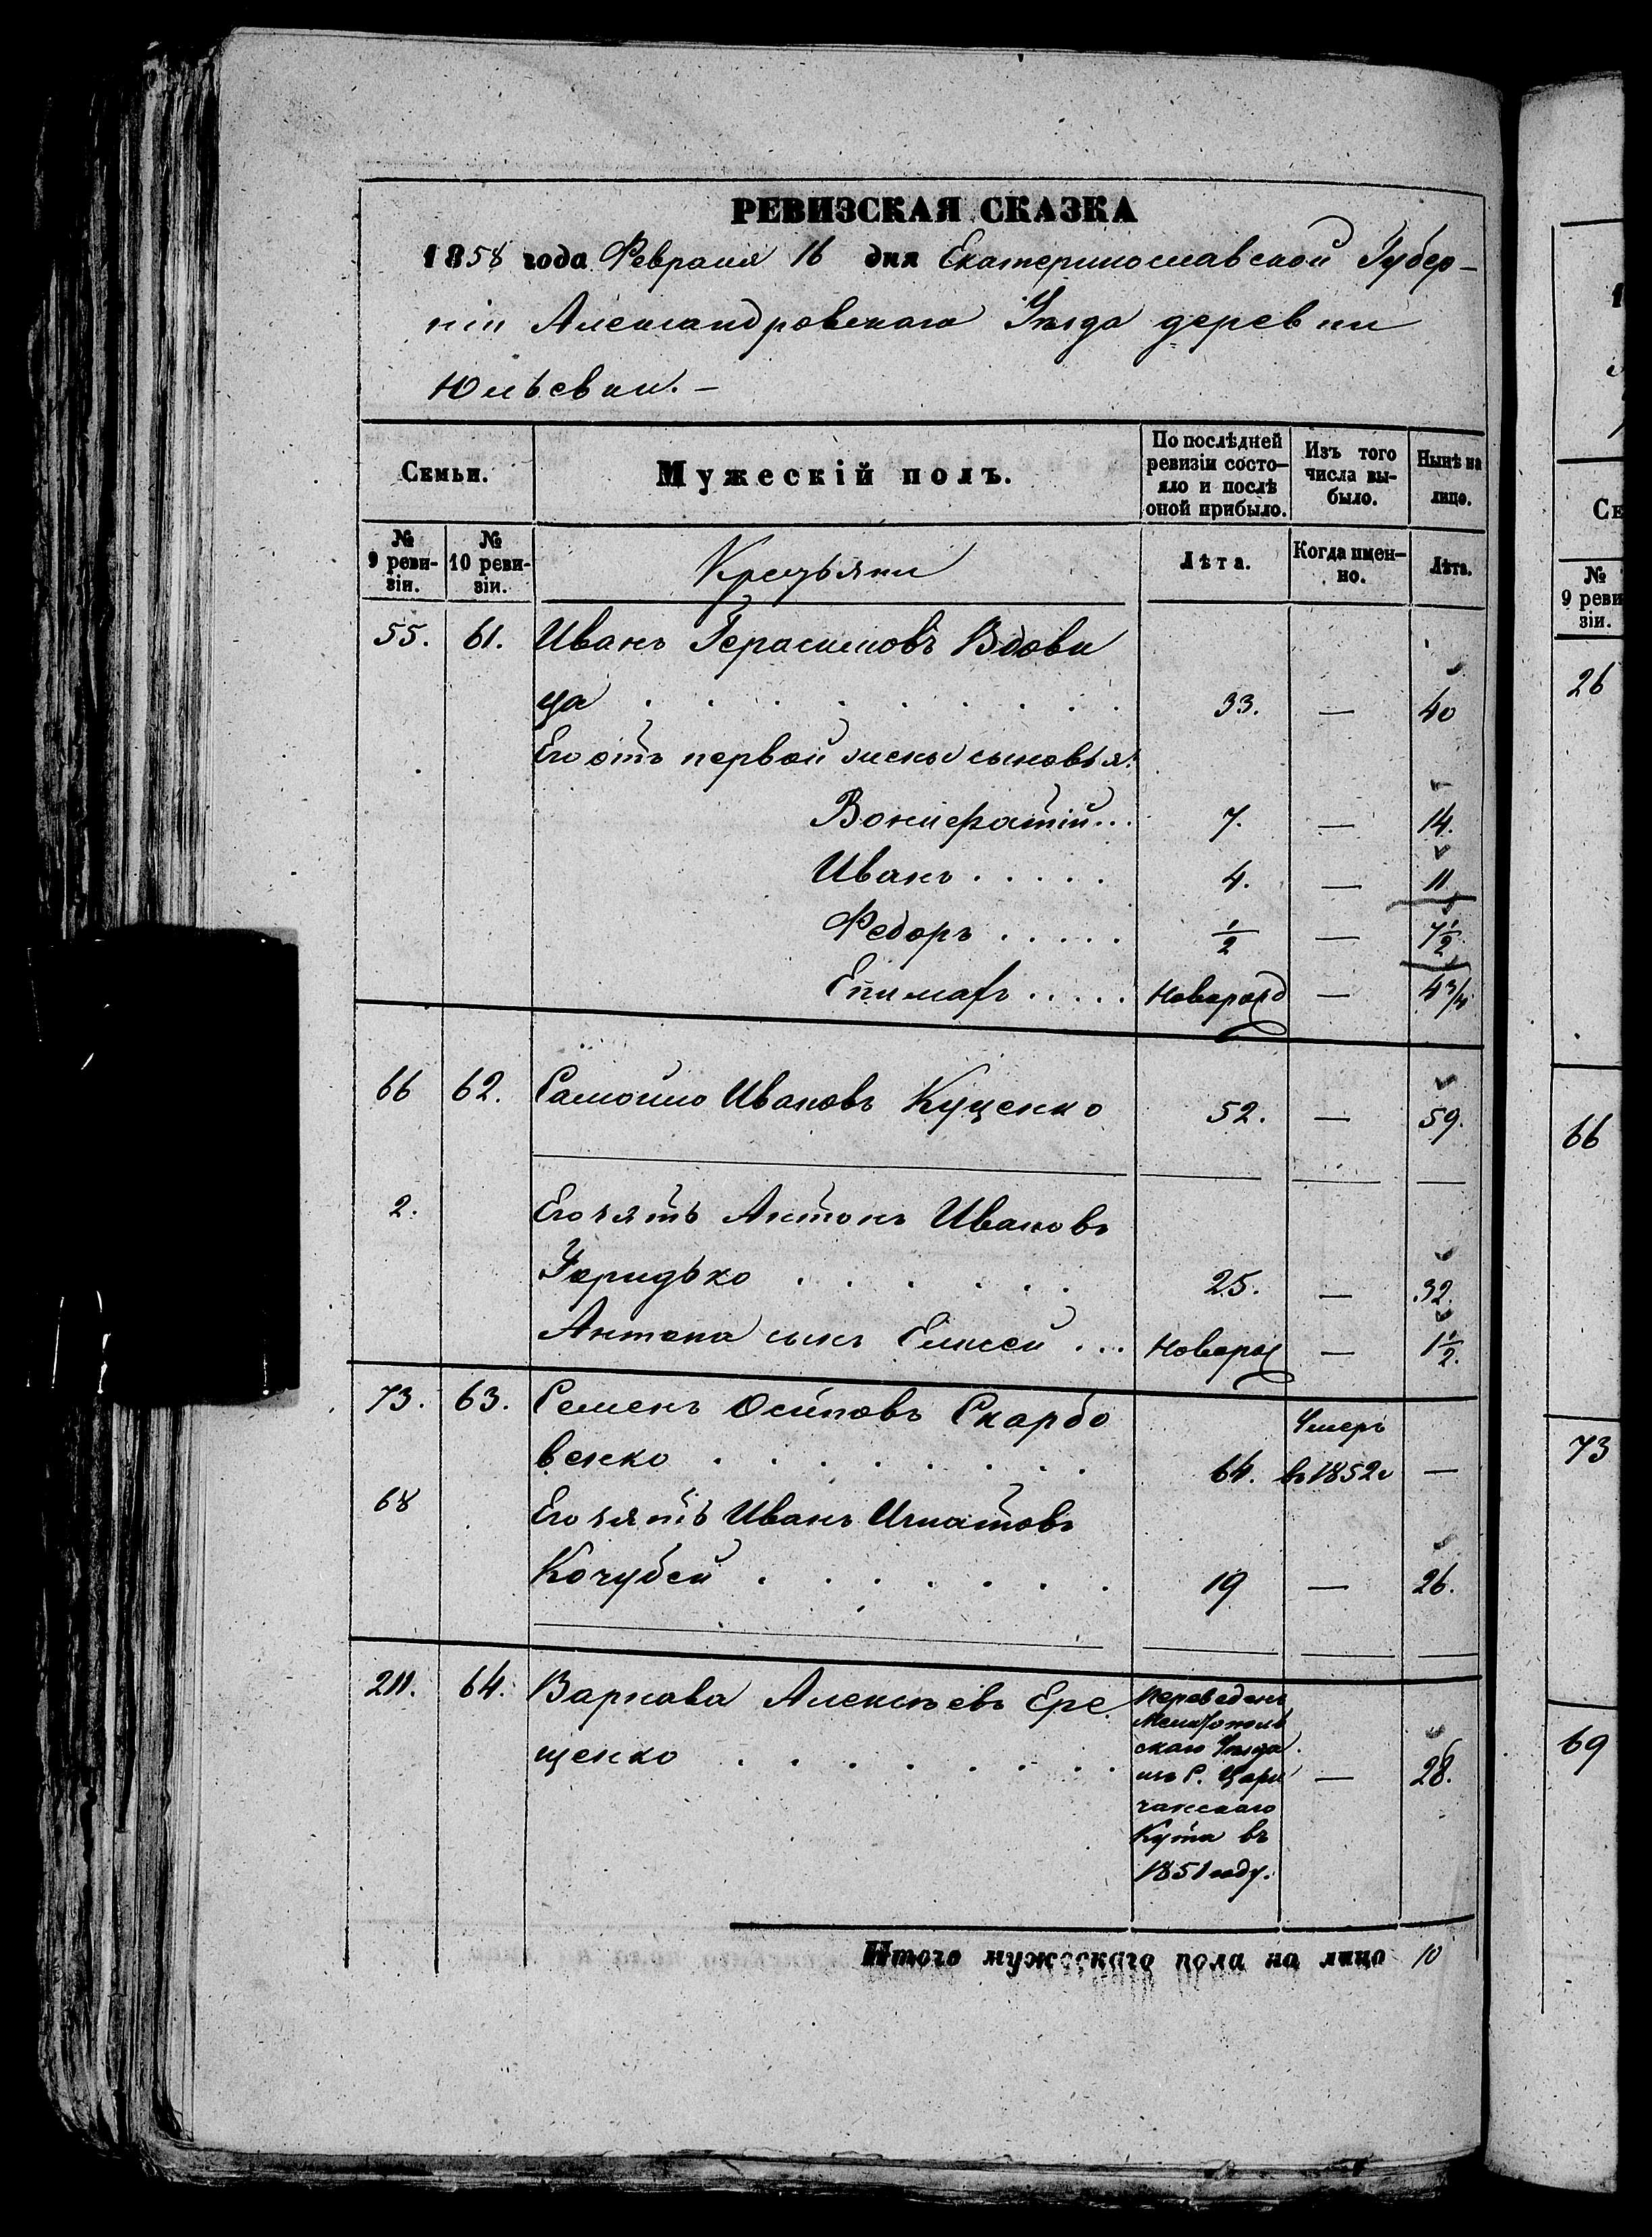 РЕВИЗСКАЯ СКАЗКА
1858 года Февраля 16 дня Екатеринославской Губер-
нiи Александровскаго Уѣзда деревни
Юльевки.-
Семьи. Мужескiй полъ. По послѣдней ревизiи состо-яло и послѣ оной прибыло. Изъ того числа вы-было. Нынѣ на лицо.
№ 9 реви-зiи. № 10 реви-зiи. Крестьяни Лѣта. Когда имен-но. Лѣта.
55. 61. Иванъ Герасимовъ Вдови
ца . . . . . . . . 33. — 40
Его отъ первой жены сыновья:
Вонифатiй... 7. — 14.
Иванъ..... 4. — 11
Федоръ..... 1/2 — 7 1/2.
Епимахъ..... Новорожд — 4 3/4
66 62. Самойло Ивановъ Куценко 52. — 59.
2. Его зять Антонъ Ивановъ
. . . . . . 25. — 32.
Антона сынъ Елисей ... Новорож — 1 1/2.
73. 63. Семенъ Осиповъ Скарбо Умеръ
венко . . . . . . . . 64. въ 1852 —
68 Его зять Иванъ Игнатовъ
Кочубей . . . . . . . 19 — 26.
211. 64. Варнава Алексѣевъ Ере переведенъ
щенко . . . . . . . Мелитополь
скаго Уѣзда
изъ С. Цари — 28.
чанскаго
Кута въ
1851 году.
Итого мужескаго пола на лицо 10
1
Се
№
9 реви
зiи.
26
66
73
69